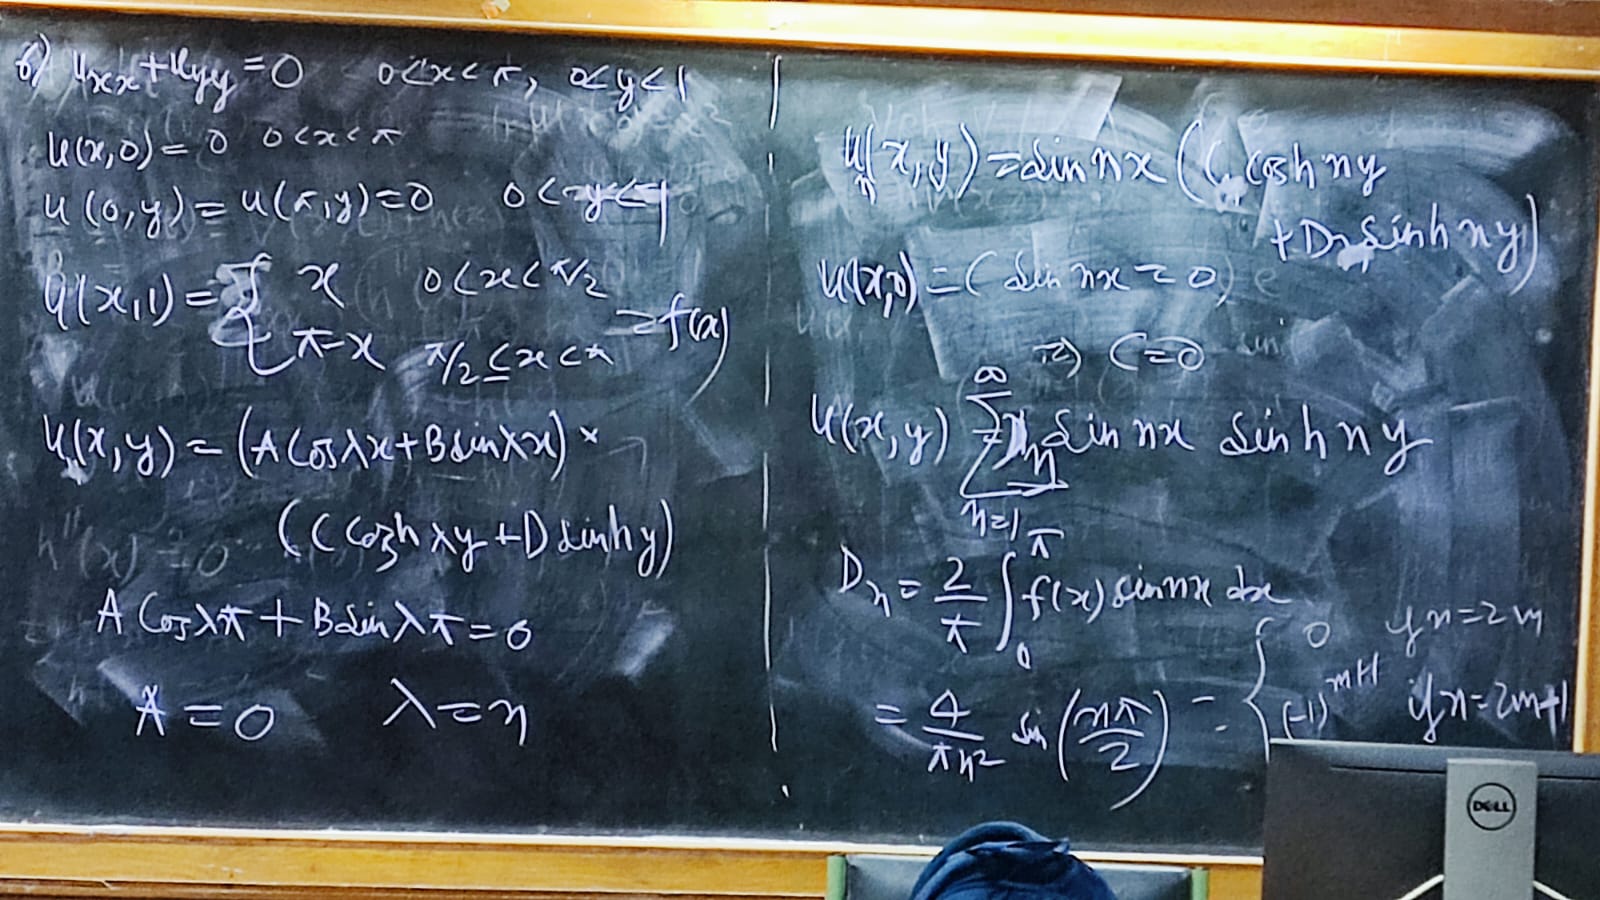 6) u_xx + u_yy = 0 0<x<π, 0<y<1
u(x,0) = 0 0<x<π
u(0,y) = u(π,y) = 0 0<y<1
u(x,1) = { x 0<x<π/2
π-x π/2 ≤ x < π = f(x)
u(x,y) = (A Cos λx + B sin λx) ×
(C Cosh λy + D sinh y)
A Cos λπ + B sin λπ = 0
A = 0 λ = n
u_n(x,y) = sin nx (C_n cosh ny
+ D_n sinh ny)
u(x,0) = C sin nx = 0
⇒ C = 0
u(x,y) = ∑_{n=1}^{∞} D_n sin nx sinh ny
D_n = 2/π ∫_0^π f(x) sin nx dx
= 4/πn² sin (nπ/2) = { 0 if n=2m
(-1)^{m+1} if n=2m+1
DELL